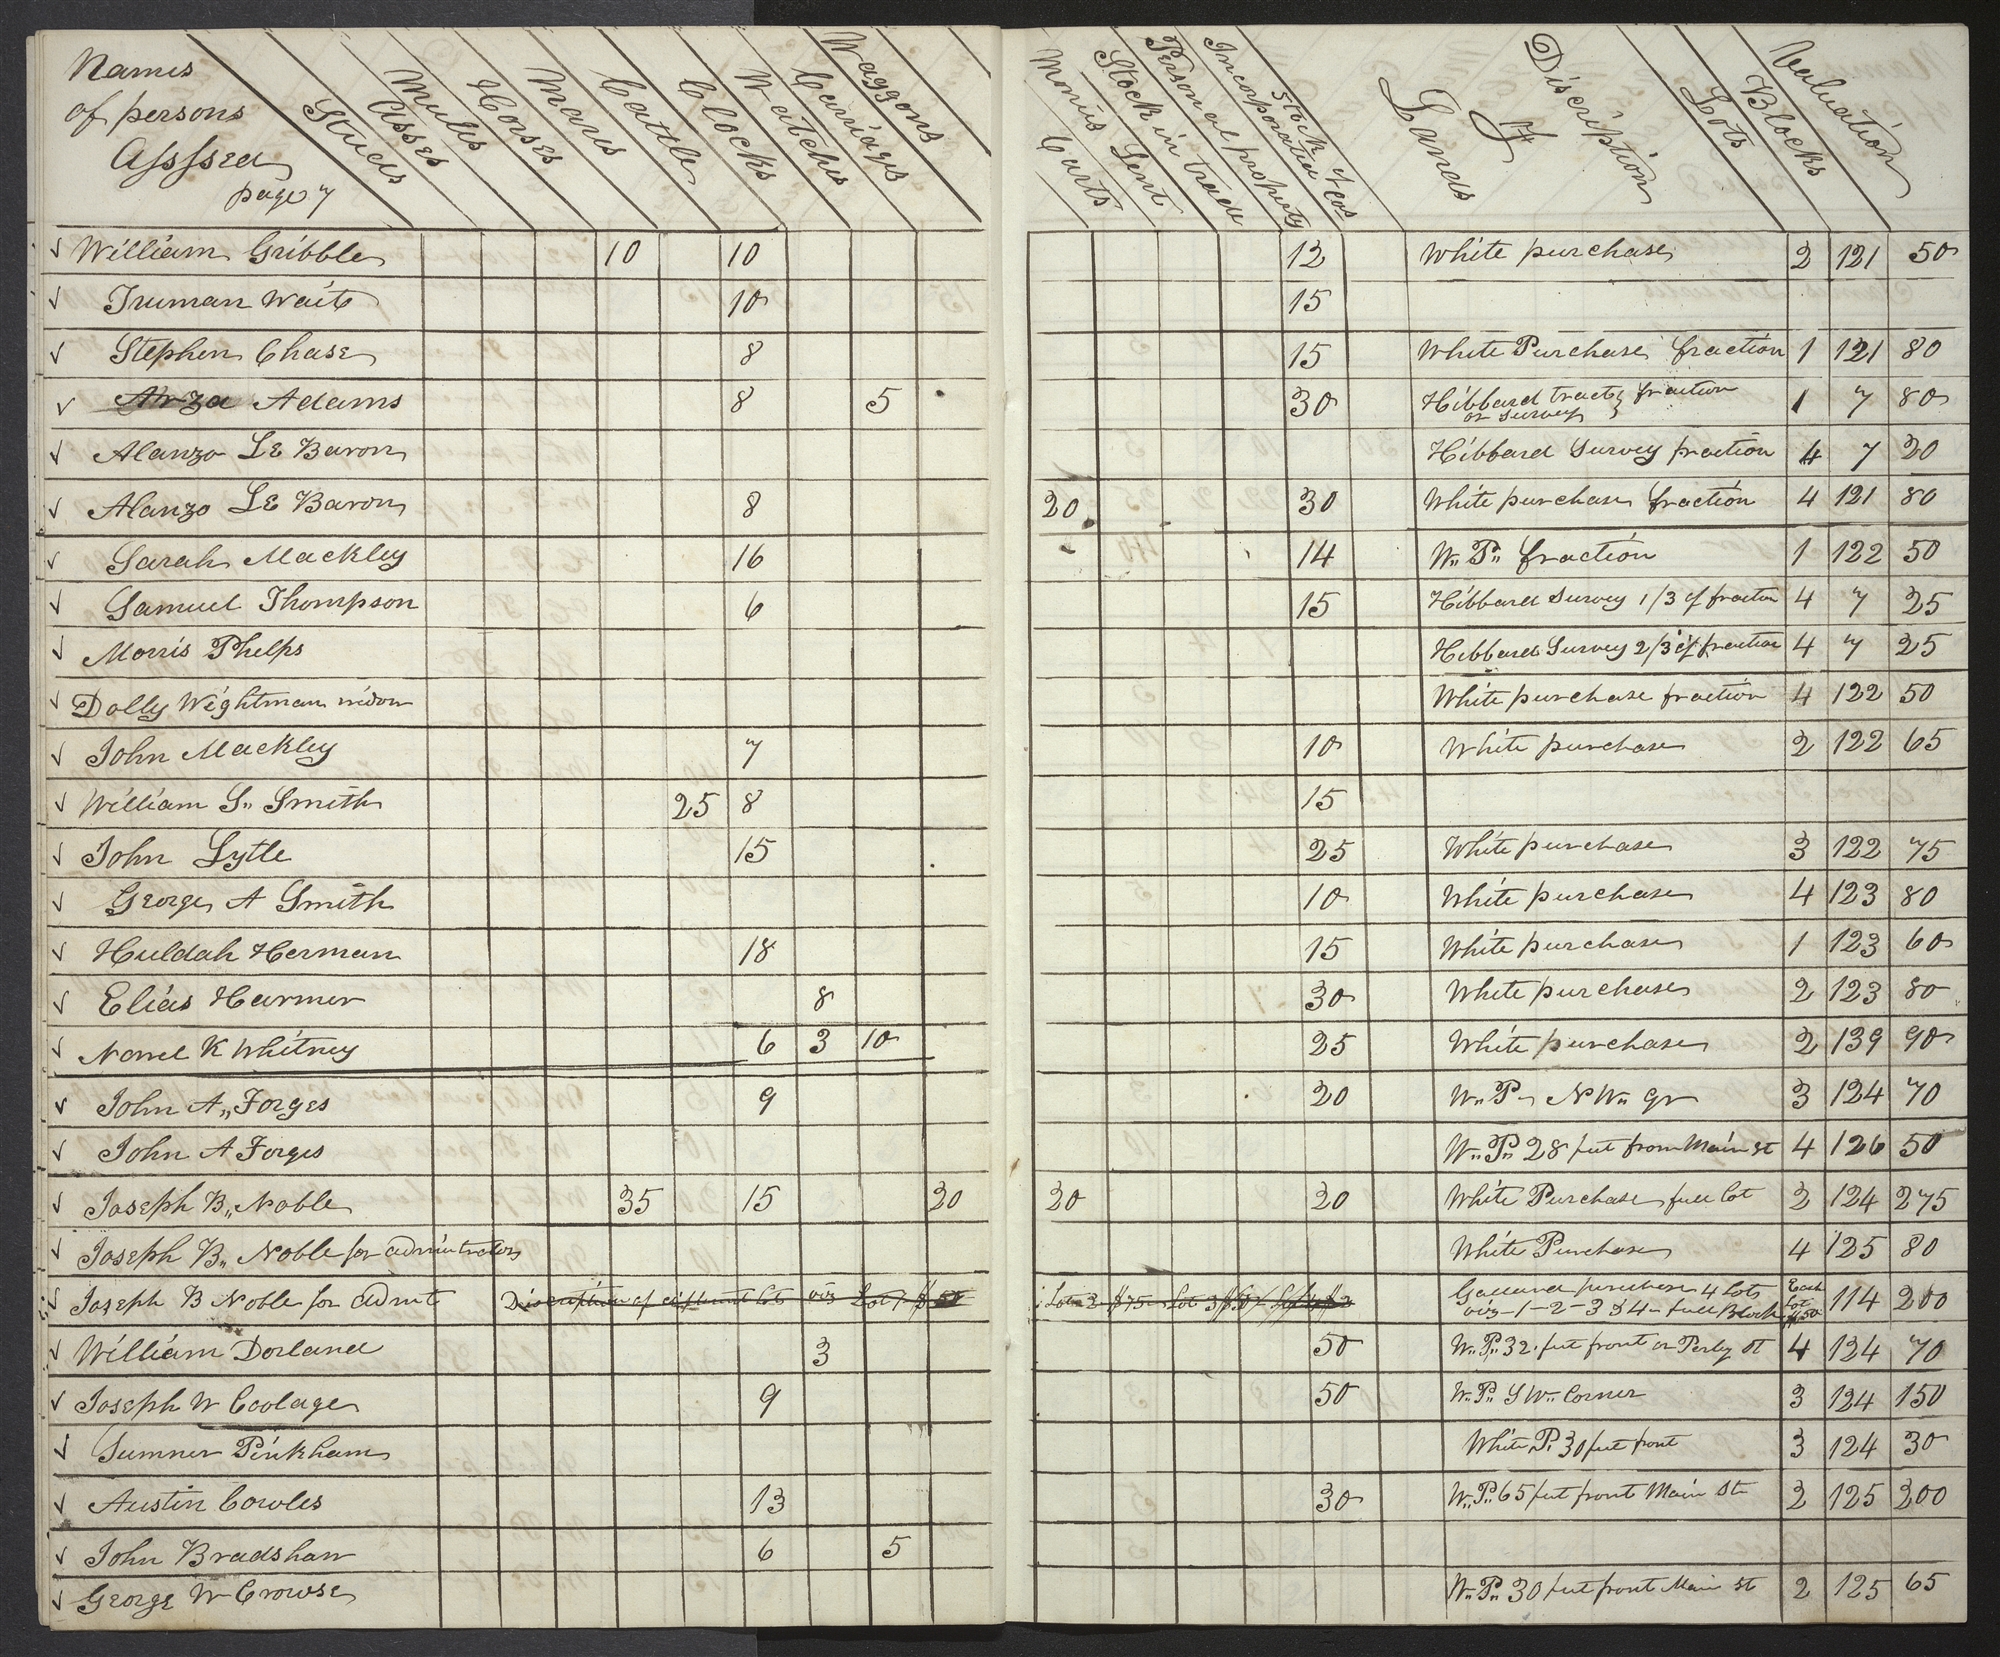 Names of persons Assssed page 7 Studs Mules Asses Horses Mares Cattle Clocks Watches Carriages Waggons Carts Monies Lent Stock in trade Personal property Stock of Incorporation Discription of Lands Lots Blocks Valuation
William Gribble 10 10 12 White purchase 2 121 50
Truman Wait 10 15
Stephen Chase 8 15 White Purchase fraction 1 121 80
Arza Adams 8 5 30 Hibbard tract or survey } fraction 1 7 80
Alanzo Le Baron Hibbard Survey fraction 4 7 20
Alanzo Le Baron 8 20 30 White purchase fraction 4 121 80
Sarah Mackley 16 14 W" P" fraction 1 122 50
Samuel Thompson 6 15 Hibbard Survey 1/3 of fraction 4 7 25
Morris Phelps Hibbard Survey 2/3 of fraction 4 7 25
Dolly Wightman widow White purchase fraction 4 122 50
John Mackley 7 10 White purchase 2 122 65
William S" Smith 25 8 15
John Lytle 15 25 White purchase 3 122 75
George A Smith 10 White purchase 4 123 80
Huldah Herman 18 15 White purchase 1 123 60
Elias Harmer 8 30 White purchase 2 123 80
Newel K Whitney 6 3 10 25 White purchase 2 139 90
John A" Forges 9 20 W" P" N W" qr 3 124 70
John A Forges W" P" 28 feet from Main St 4 126 50
Joseph B" Noble 35 15 20 20 20 White Purchase full lot 2 124 275
Joseph B" Noble for adminstrators White Purchase 4 125 80
Joseph B Noble for Admt Discription of different lots viz Lot 1 $ 50 Lot 2 $75 Lot 3 Galland purchase 4 lots viz 1-2-3 & 4 full Block Each Lot $50 114 200
William Dorland 3 50 W" P" 32 feet front on Parley St 4 124 70
Joseph W Coolage 9 50 W" P" S W" Corner 3 124 150
Sumner Pinkham White P" 30 feet front 3 124 30
Austin Cowles 13 30 W" P" 65 feet front Main St 2 125 200
John Bradshaw 6 5
George W Crowse W" P" 30 feet front Main St 2 125 65